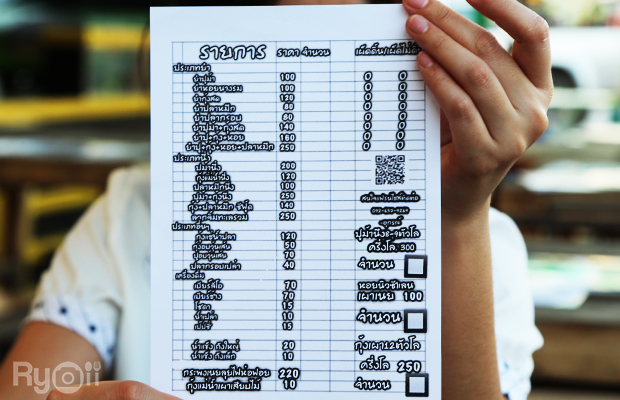 รายการ ราคา จำนวน เผ็ดดิ้น/เผ็ดไม่ดิ้น
ประเภทยำ
ยำปูม้า 100 0 0
ยำหอยนางรม 100 0 0
ยำกุ้งสด 120 0 0
ยำปลาหมึก 80 0 0
ยำปลากรอบ 60 0 0
ยำปูม้า+กุ้งสด 140 0 0
ยำปู+กุ้ง+หอย 160 0 0
ยำปู+กุ้ง+หอย+ปลาหมึก 250
ประเภทนึ่ง
ปูม้านึ่ง 200
กุ้งแม่น้ำนึ่ง 120
ปลาหมึกนึ่ง 100
ปูม้า+กุ้งนึ่ง 250
กุ้ง+ปลาหมึก ซีฟู้ด 140
ลากุ้มทะเลรวมมิ 250
ประเภทอื่นๆ
กุ้งแช่น้ำปลา 120
กุ้งอบวุ้นเส้น 50
ปูอบวุ้นเส้น 70
ปลากรอบเปล่า 40
เครื่องดื่ม
เบียร์ลีโอ 70
เบียร์ช้าง 70
โซดา 15
น้ำเปล่า 10
เป๊ปซี่ 15
น้ำแข็ง ถังใหญ่ 20
น้ำแข็ง ถังเล็ก 10
กระพงเนยลุยไฟห่อฟอย 220
กุ้งแม่น้ำเผาเสียบไม้ 10
สนใจแฟรนไชส์ติดต่อ
ปูม้านึ่ง8-9ตัวโล
ครึ่งโล. 300
จำนวน
หอยนิวซีแลน
เผาเนย 100
จำนวน
กุ้งเผา12ตัวโล
ครึ่งโล 250
จำนวน
Ryoii